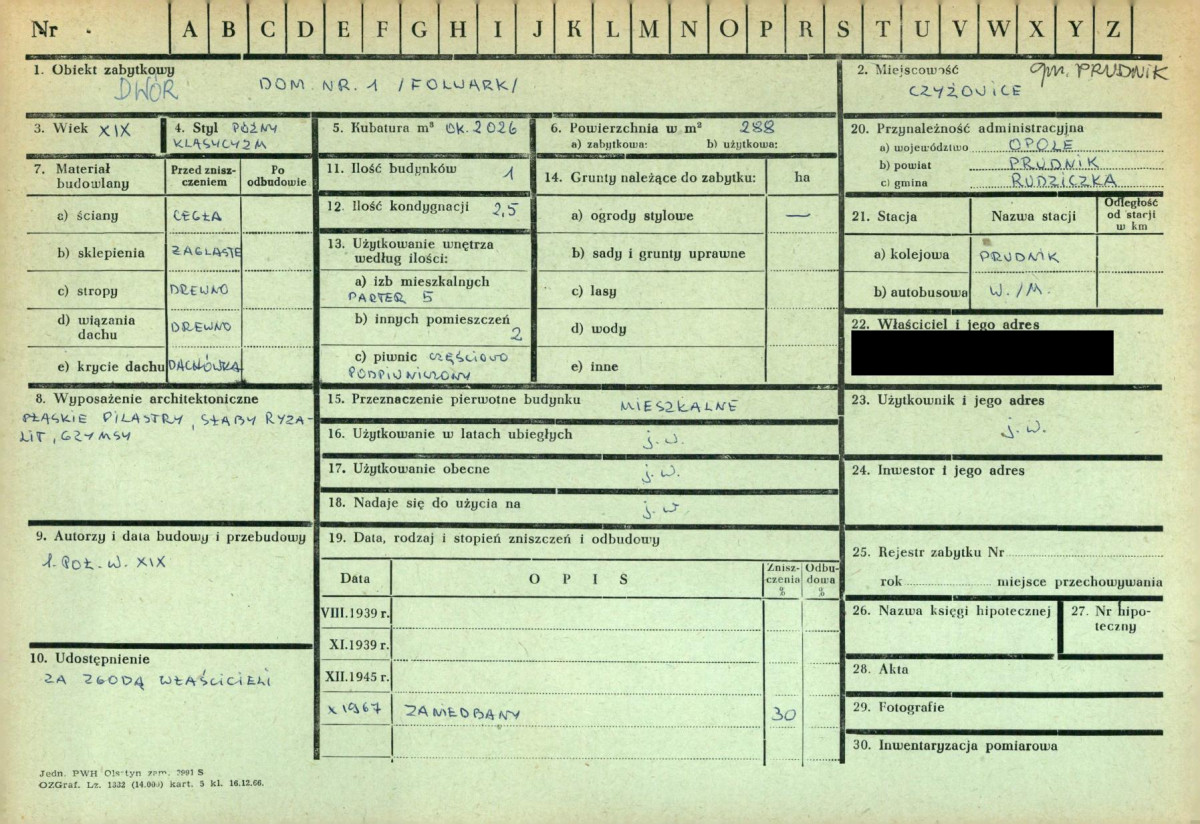 Nr
A B C D E F G H I J K L M N O P R S T U V W X Y Z
1. Obiekt zabytkowy
DWÓR DOM. NR. 1 /FOLWARK/
2. Miejscowość gm. PRUDNIK
CZYŻOWICE
3. Wiek XIX
4. Styl PÓŹNY
KLASYCYZM
5. Kubatura m³ OK. 2026
6. Powierzchnia w m² 288
a) zabytkowa: b) użytkowa:
7. Materiał budowlany
Przed znisz-
czeniem
Po
odbudowie
a) ściany CEGŁA
b) sklepienia ŻAGLASTE
c) stropy DREWNO
d) wiązania
dachu DREWNO
e) krycie dachu DACHÓWKA
8. Wyposażenie architektoniczne
PŁASKIE PILASTRY, SŁABY RYZA-
LIT, GZYMSY
9. Autorzy i data budowy i przebudowy
1. POŁ. W. XIX
10. Udostępnienie
ZA ZGODĄ WŁAŚCICIELI
11. Ilość budynków 1
12. Ilość kondygnacji 2,5
13. Użytkowanie wnętrza
według ilości:
a) izb mieszkalnych
PARTER 5
b) innych pomieszczeń
2
c) piwnic CZĘŚCIOWO
PODPIWNICZONY
14. Grunty należące do zabytku: ha
a) ogrody stylowe —
b) sady i grunty uprawne
c) lasy
d) wody
e) inne
15. Przeznaczenie pierwotne budynku MIESZKALNE
16. Użytkowanie w latach ubiegłych j. w.
17. Użytkowanie obecne j. w.
18. Nadaje się do użycia na j. w
19. Data, rodzaj i stopień zniszczeń i odbudowy
Data OPIS
Znisz-
czenia
%
Odbu-
dowa
%
VIII.1939 r.
XI.1939 r.
XII.1945 r.
X 1967 ZANIEDBANY 30
20. Przynależność administracyjna
a) województwo OPOLE
b) powiat PRUDNIK
c) gmina RUDZICZKA
21. Stacja Nazwa stacji
Odległość
od stacji
w km
a) kolejowa PRUDNIK
b) autobusowa W./M.
22. Właściciel i jego adres
23. Użytkownik i jego adres
j. w.
24. Inwestor i jego adres
25. Rejestr zabytku Nr
rok miejsce przechowywania
26. Nazwa księgi hipotecznej
27. Nr hipo-
teczny
28. Akta
29. Fotografie
30. Inwentaryzacja pomiarowa
Jedn. PWH Olsztyn zam. 2991 S
OZGraf. Lz. 1332 (14.000) kart. 5 kl. 16.12.66.